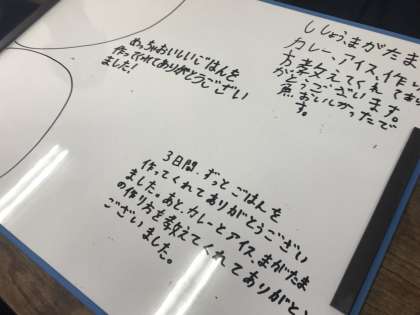 めっちゃおいしいごはんを
作ってくれてありがとうござい
ました!
ししょう、まがたま
カレー、アイス、作り
方教えてくれてあ
りがとうございます。
魚おいしかったで
す。
3日間、ずっとごはんを
作ってくれてありがとうござい
ました。あと、カレーとアイス、まがたま
の作り方を教えてくれてありがと、
ございました。